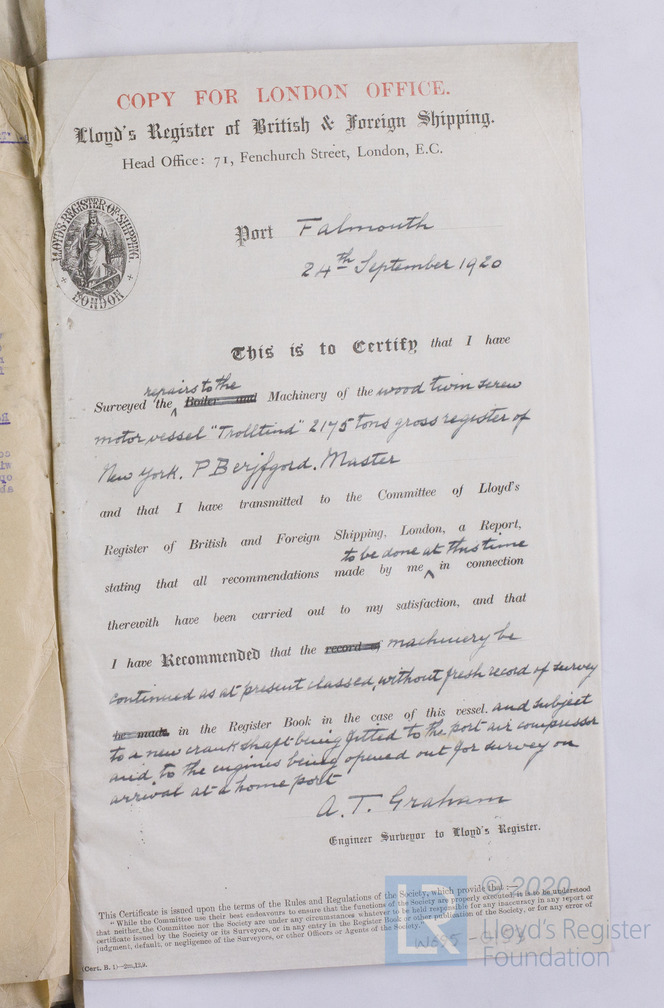 COPY FOR LONDON OFFICE.
Lloyd's Register of British & Foreign Shipping.
Head Office: 71, Fenchurch Street, London, E.C.
LLOYD'S REGISTER OF SHIPPING.
LONDON
Port Falmouth
24th September 1920
This is to Certify that I have
repairs to the
Surveyed the Boiler and Machinery of the wood twin screw
motor vessel "Trolltind" 2175 tons gross register of
New York. P Berjfgord. Master
and that I have transmitted to the Committee of Lloyd's
Register of British and Foreign Shipping, London, a Report,
to be done at this time
stating that all recommendations made by me in connection
therewith have been carried out to my satisfaction, and that
I have Recommended that the record of machinery be
continued as at present classed, without fresh record of survey
be made in the Register Book in the case of this vessel. and subject
to a new crank shaft being fitted to the port air compressor
and to the engines being opened out for survey on
arrival at a home port
A. T. Graham
Engineer Surveyor to Lloyd's Register.
This Certificate is issued upon the terms of the Rules and Regulations of the Society, which provide that:—
"While the Committee use their best endeavours to ensure that the functions of the Society are properly executed, it is to be understood
that neither the Committee nor the Society are under any circumstances whatever to be held responsible for any inaccuracy in any report or
certificate issued by the Society or its Surveyors, or in any entry in the Register Book or other publication of the Society, or for any error of
judgment, default, or negligence of the Surveyors, or other Officers or Agents of the Society."
(Cert. B. 1)—2m,13,9.
© 2020
LR
Lloyd's Register
Foundation